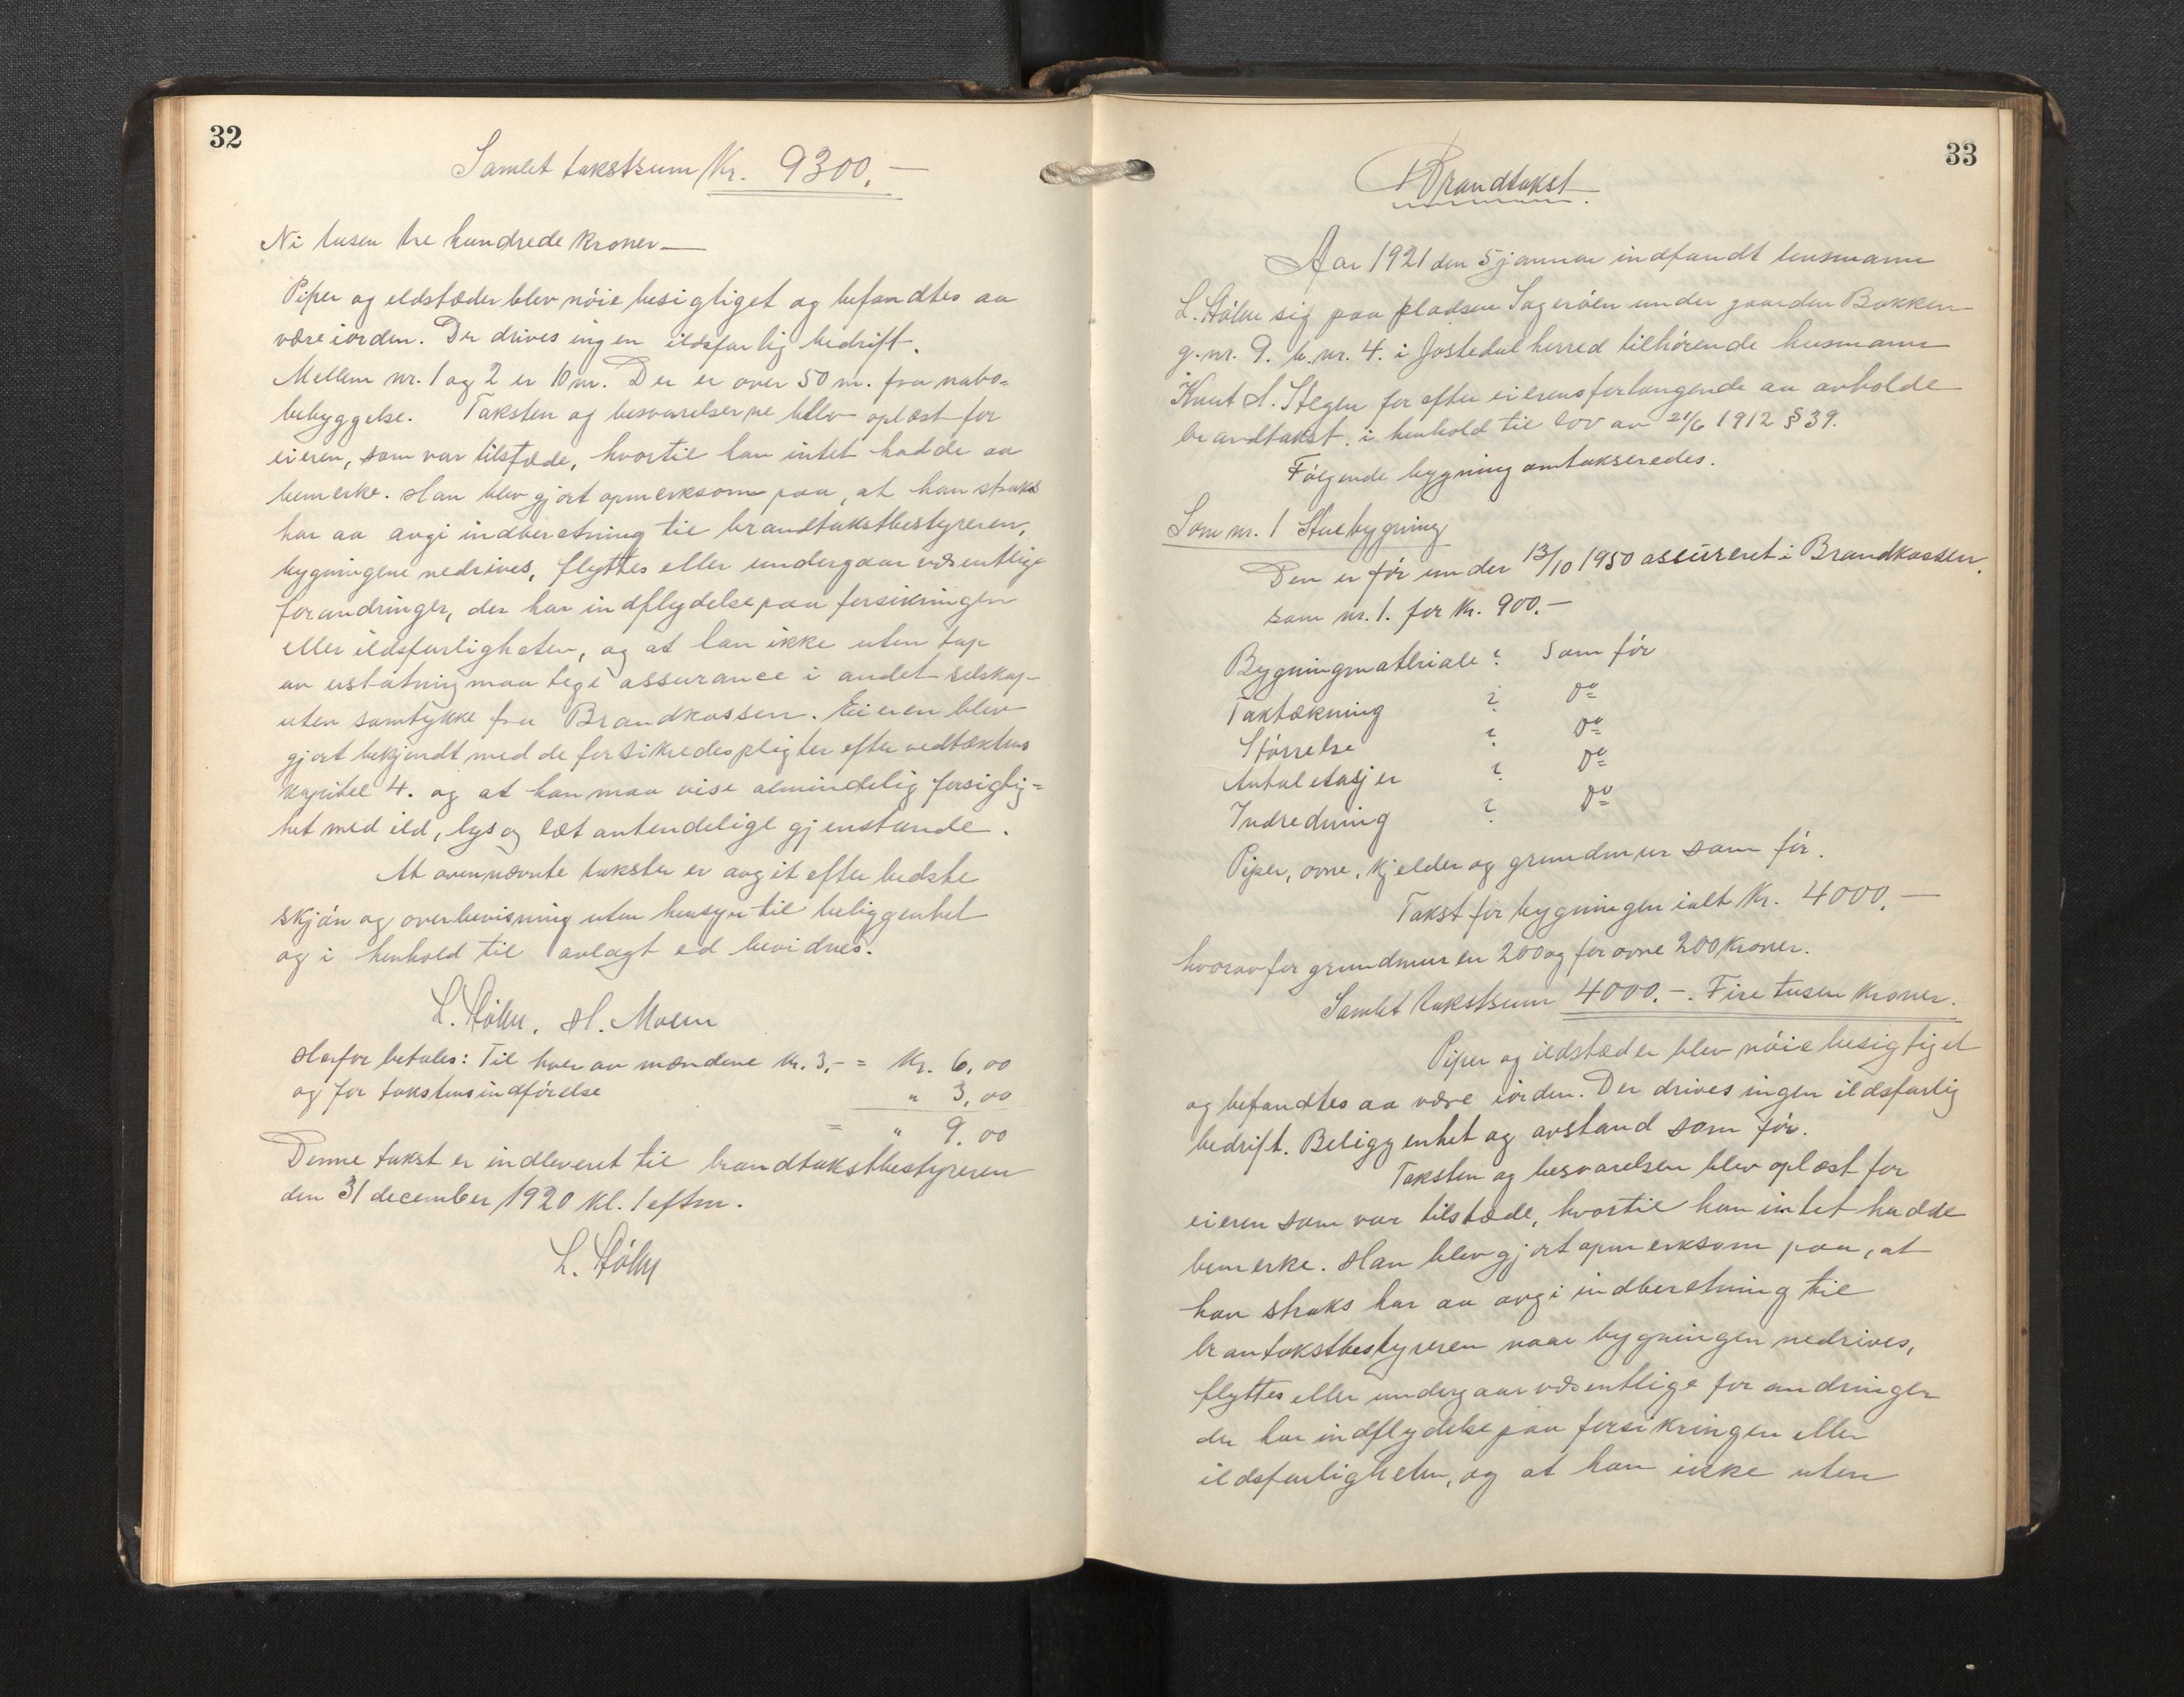 32
Samlet takstsum Kr. 9300.–
Ni tusen tre hundrede kroner –
Piper og ildstæder blev nöie besigtiget og befandtes aa
være iorden. Der drives ingen ildsfarlig bedrift.
Mellem nr. 1 og 2 er 10 m. Der er over 50 m. fra nabo-
bebyggelse. Taksten og besvarelserne blev oplæst for
eieren, som var tilstæde, hvortil han intet hadde aa
bemerke. Han blev gjort opmerksom paa, at han straks
har aa avgi indberetning til brandtakstbestyreren,
bygningene nedrives, flyttes eller undergaar væsentlige
forandringer, der har indflydelse paa forsikringen
eller ildsfarligheten, og at han ikke uten tap
av erstatning maa tegi assurance i andet selskap
uten samtykke fra Brandkassen. Eieren blev
gjort bekjendt med de forsikredes pligter efter vedtæktens
kapitel 4. og at han maa vise almindelig forsigtig-
het med ild, lys og læt antendelige gjenstande.
At ovennævnte takster er avgit efter bedste
skjön og overbevisning uten hensyn til beliggenhet
og i henhold til avlagt ed bevidnes.
L. Höln. H. Moen
Herfor betales: Til hver av mændene kr. 3,- = Kr. 6,00
og for takstens indförelse " 3,00
= " 9.00
Denne takst er indleveret til brandtakstbestyreren
den 31 december 1920 kl. 1 eftm.
L. Höln
33
Brandtakst.
Aar 1921 den 5 januar indfandt lensmann
L. Höln sig paa pladsen Sageröen under gaarden Bakken
g.nr. 9. b.nr. 4. i Jostedal herred tilhörende husmann
Knut A. Stegen for efter eierens forlangende aa avholde
brandtakst. i henhold til lov av 21/6 1912 § 39.
Fölgende bygning omtakseredes.
Som nr. 1 Stuebygning
Den er för under 13/10 1950 assureret i Brandkassen.
som nr. 1. for Kr. 900.–
Bygningmatriale : Som för
Taktækning : Do
Störrelse : Do
Antal etasjer : Do
Indredning : Do
Piper, ovne, kjelder og grundmur som för.
Takst for bygningen ialt Kr. 4000.–
hvorav for grundmuren 200 og for ovne 200 Kroner.
Samlet takstsum 4000.–. Fire tusen kroner.
Piper og ildstæder blev nöie besigtiget
og befandtes aa være iorden. Der drives ingen ildsfarlig
bedrift. Beliggenhet og avstand som för.
Taksten og besvarelsen blev oplæst for
eieren som var tilstæde, hvortil han intet hadde
bemerke. Han blev gjort opmerksom paa, at
han straks har aa avgi indberetning til
brantakstbestyreren naar bygningen nedrives,
flyttes eller undergaar væsentlige forandringer
der har indflydelse paa forsikringen eller
ildsfarligheten, og at han ikke uten